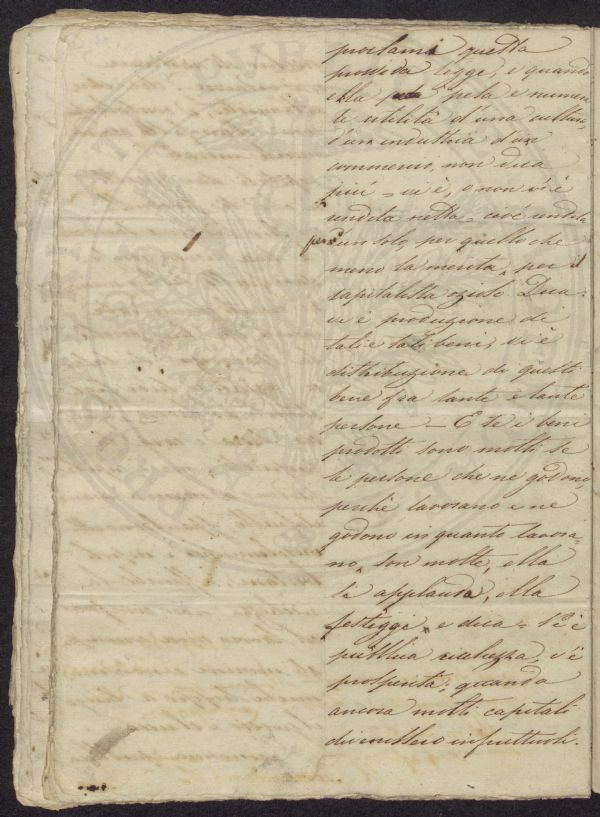 proclami questa
provvida legge, e quando
ella pesa e numera
le utilità d'una cultura,
d'un industria d'un
commercio, non dica
più - vi è, o non vi è
rendita netta - cioè rendita
per un solo, per quello che
meno la merita, per il
capitalista ozioso. Dica -
vi è produzione di
tali e tali beni, vi è
distribuzione di questi
bene fra tante e tante
persone - E se i beni
prodotti sono molti se
le persone che ne godono,
perchè lavorano e ne
godono in quanto lavora=
no, son molte, ella
li applauda, ella
festeggi, e dica -
pubblica ricchezza, v'è
prosperità; quando
ancora molti capitali
divenissero infruttuosi.